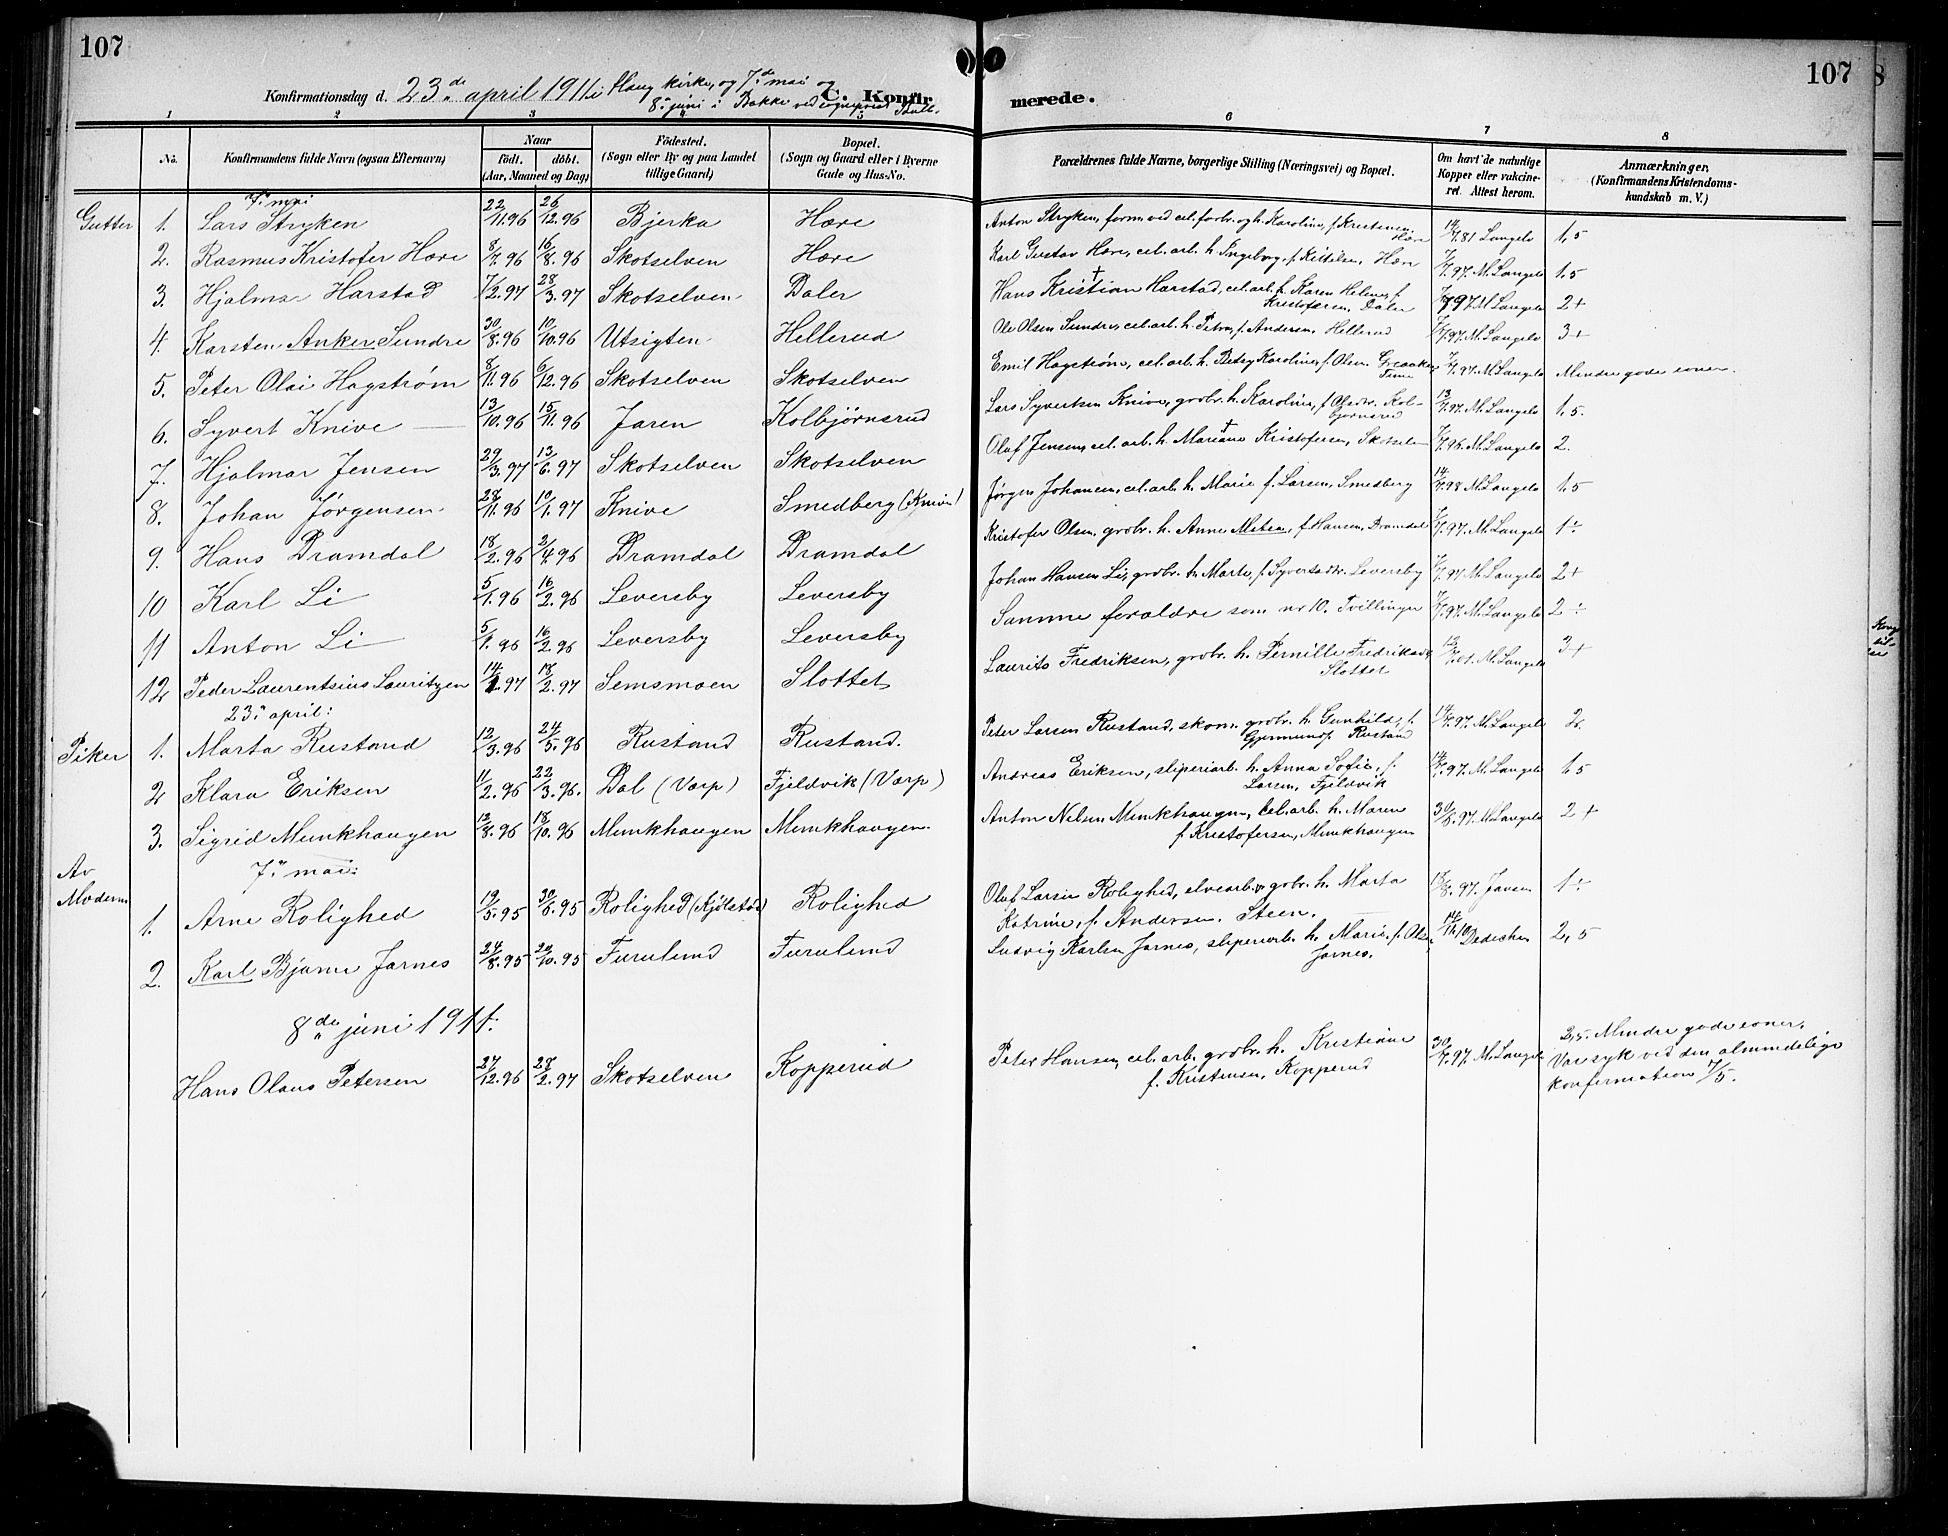 107
107
Konfirmationsdag d. 23de april 1911 i Haug kirke, og 7de mai og
8. juni i Bakke ved sogneprest
C. Konfirmerede.
1 2 3 5 6 7 8
No.
Konfirmandens fulde Navn (ogsaa Efternavn)
Naar
födt. döbt.
(Aar, Maaned og Dag)
Födested.
(Sogn eller By og paa Landet
tillige Gaard)
Bopæl.
(Sogn og Gaard eller i Byerne
Gade og Hus-No.
Forældrenes fulde Navne, borgerlige Stilling (Næringsvei) og Bopæl.
Om havt de naturlige
Kopper eller vakcine-
ret. Attest herom.
Anmærkninger.
(Konfirmandens Kristendoms-
kundskab m. V.)
7. mai
Gutter 1. Lars Stryken 22/11.96 26/12.96 Bjerka Hære Anton Stryken, form. ved cel.forbr. og h. Karoline, f. Kristensen Hære 14/7.81 Langelo 1,5
2. Rasmus Kristofer Hære 8/7.96 16/8.96 Skotselven Hære Karl Gustav Hære, cel.arb. h. Ingeborg, f. Kittilsen, Hære 7/7.97. M. Langelo 1.5
3. Hjalmar Harstad 7/2.97 28/3.97 Skotselven Daler Hans Kristian † Harstad, cel.arb. f. Karen Helene, f. Kristofersen, Daler 7/7.97 M. Langelo 2+
4. Karsten Anker Sundre 30/8.96 10/10.96 Utsigten Hellerud Ole Olsen Sundre, cel.arb. h. Petra, f. Andersen, Hellerud 7/7.97. M. Langelo 3+
5. Peter Olai Hagstrøm 8/11.96 6/12.96 Skotselven Skotselven Emil Hagstrøm, cel.arb. h. Betsy Karoline, f. Olsen 7/7.97. M. Langelo Mindre gode evner.
6. Syvert Knive 13/10.96 15/11.96 Jaren Kolbjørnsrud Lars Syvertsen Knive, grdbr. h. Karoline, f. Olsdtr. Kolbjørnsrud 13/7.97. M. Langelo 1,5.
7. Hjalmar Jensen 29/3.97 13/6.97 Skotselven Skotselven Olaf Jensen, cel.arb. h. Mariane † Kristofersen, Skotselv 7/7.96 M. Langelo 2.
8. Johan Jørgensen 28/11.96 10/1.97 Knive Smedberg (Knive) Jørgen Johansen, cel.arb. h. Marie f. Larsen, Smedberg 14/7.98 M. Langelo 1,5
9. Hans Dramdal 18/2.96 2/4.96 Dramdal Dramdal Kristofer Olsen, grdbr. h. Anne f. Hansen, Dramdal 7/7.97. M. Langelo 1÷
10 Karl Li 5/1.96 16/2.96 Leversby Leversby Johan Hansen Li, grdbr. h. Marte, f. Syvertsdtr. Leversby 7/7.97 M. Langelo 2+
11 Anton Li 5/1.96 16/2.96 Leversby Leversby Samme forældre som nr 10. Tvillinger 7/7.97. M. Langelo 2÷
12 Peder Laurentsius Lauritzen 14/1.97 18/2.97 Semsmoen Slottet Laurits Fredriksen, grdbr. h. Pernille Fredriksd. Slottet 13/7.01. M. Langelo 3+
23. april:
Piker 1. Marta Rustand 12/3.96 24/5.96 Rustand Rustand. Peter Larsen Rustand, skom. grdbr. h. Gunhild, f. Gjermundsd. Rustand 14/7.97. M. Langelo 2.
2 Klara Eriksen 11/2.96 22/3.96. Dal (Varp) Fjeldvik (Varp) Andreas Eriksen, sliperiarb. h. Anna Sofie, f. Larsen, Fjeldvik 14/7.97. M. Langelo 1,5
3. Sigrid Munkhaugen 12/8.96 18/10.96 Munkhaugen Munkhaugen. Anton Nelsen Munkhaugen, cel.arb. h. Maren f. Kristofersen, Munkhaugen 30/8.97. M. Langelo 2+
7. mai:
Av
Modum
1. Arne Rolighed 19/5.95 30/6.95 Rolighed (Kjølstad) Rolighed Olaf Larsen Rolighed, elvearb. grdbr. h. Marta Katrine, f. Andersen. Steen. 18/8.97. Jansen 1÷
2. Karl Bjarne Jarnes 24/8.95 20/10.95 Furulund Furulund Ludvig Karlsen Jarnes, sliperiarb. h. Marie, f. Olsen Jarnes. Dedichen 2,5
8de juni 1911:
Hans Olaus Petersen 27/12.96 28/2.97 Skotselven Kopperud Peter Hansen, cel.arb. grdbr. h. Kristiane f. Kristensen, Kopperud 30/7.97. M. Langelo 2,5. Mindre gode evner.
Var syk ved den almindelige
konfirmation 7/5.